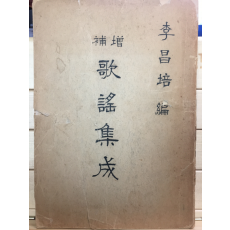 李昌培 編
增補
歌謠集成